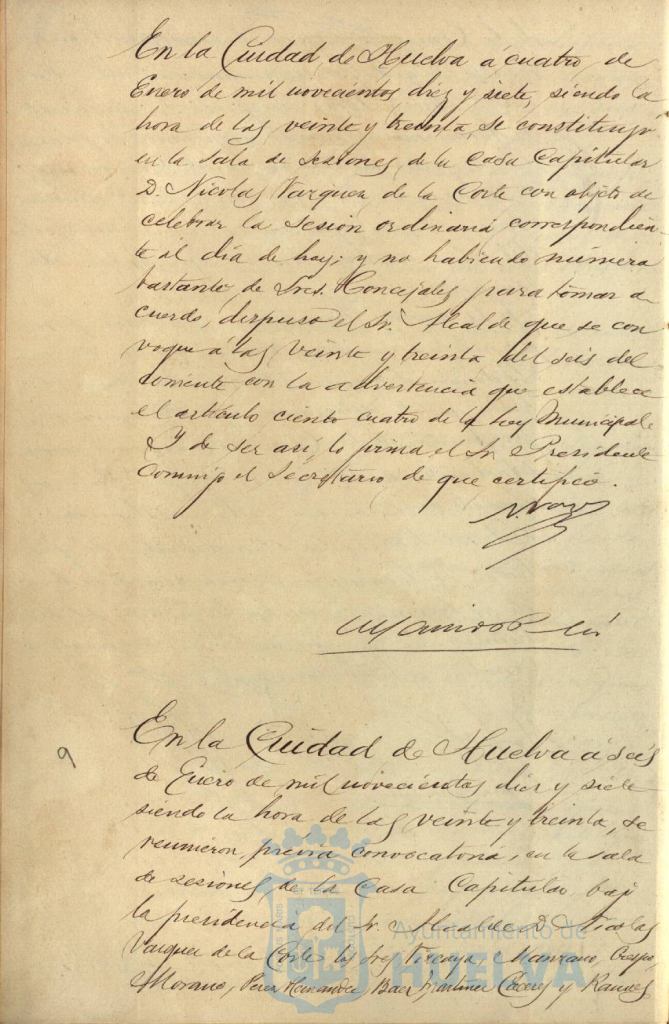 En la Ciudad de Huelva á cuatro de
Enero de mil novecientos diez y siete, siendo la
hora de las veinte y treinta, se constituyó
en la sala de sesiones de la Casa Capitular
D. Nicolas Vazquez de la Corte con objeto de
celebrar la sesion ordinaria correspondien-
te al dia de hoy; y no habiendo número
bastante de Sres. Concejales para tomar a-
cuerdo, dispuso el Sr. Alcalde que se con
voque á las veinte y treinta del seis del
corriente con la advertencia que establece
el artículo ciento cuatro de la Ley Municipal.
Y de ser asi, lo firma el Sr. Presidente
conmigo el Secretario, de que certifico.
N. Vazq
En la Ciudad de Huelva á seis
9
de Enero de mil novecientos diez y siete
siendo la hora de las veinte y treinta, se
reunieron, previa convocatoria, en la sala
de sesiones de la Casa Capitular bajo
la presidencia del Sr. Alcalde D. Nicolas
Vazquez de la Corte los Sres Tirado, Manzano, Crespo,
Morano, Perez Hernandez, Baez, Martinez Cáceres y
Ayuntamiento de
HUELVA